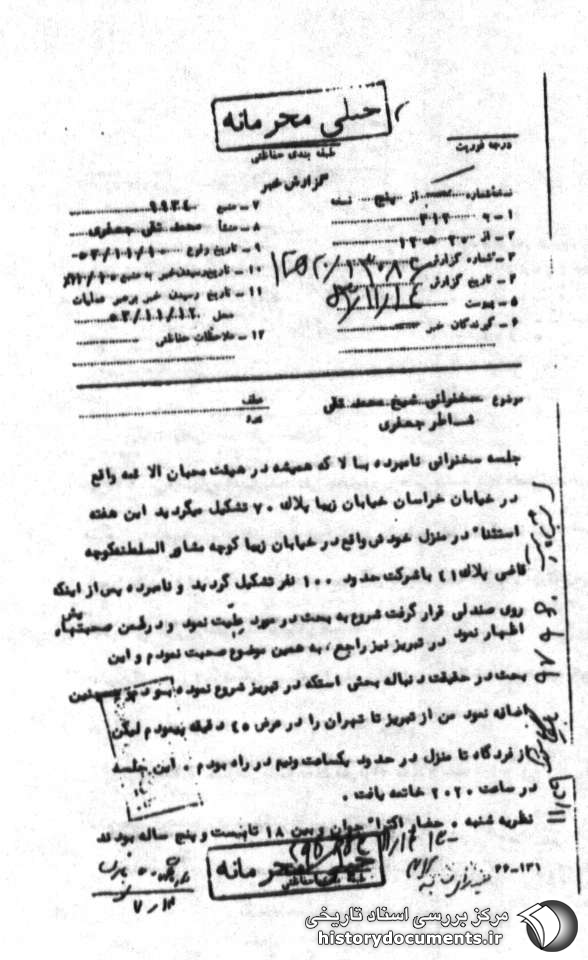 خیلی محرمانه
طبقه بندی حفاظتی
درجه فوریت
گزارش خبر
نسخه شماره از پنج نسخه
۱ - به ۳۱۲
۲ - از ۲۰ ه ۱۲
۳ - شماره گزارش
۴ - تاریخ گزارش
۵ - پیوست
۶ - گیرندگان خبر
۷ - منبع ۱۱۳۴۰
۸ - منشأ محمد تقی جعفری
۹ - تاریخ وقوع ۵۳/۱۱/۱۰
۱۰ - تاریخ رسیدن خبر به منبع
۱۱ - تاریخ رسیدن خبر برهبر عملیات
محل ۵۳/۱۱/۱۲
۱۲ - ملاحظات حفاظتی
موضوع سخنرانی شیخ محمد تقی
شاطر جعفری
جلسه سخنرانی نامبرده بالا که همیشه در هیئت محبان الائمه واقع
در خیابان خراسان خیابان زیبا پلاک ۷۰ تشکیل میگردید این هفته
استثنا" در منزل خودش واقع در خیابان زیبا کوچه مشاور السلطنه کوچه
قاضی پلاک ۴۱ با شرکت حدود ۱۰۰ نفر تشکیل گردید و نامبرده پس از اینکه
روی صندلی قرار گرفت شروع به بحث در مورد نمود و در ضمن صحبتهایش
اظهار نمود در تبریز نیز راجع به همین موضوع صحبت نمودم و این
بحث در حقیقت دنباله بحثی استکه در تبریز شروع نموده بودم همچنین
اضافه نمود من از تبریز تا تهران را در عرض ۴۵ دقیقه پیمودم لیکن
از فردگاه تا منزل در حدود یکساعت ونیم در راه بودم . این جلسه
در ساعت ۲۰۲۰ خاتمه یافت .
نظریه شنبه . حضار اکثرا" جوان و بین ۱۸ تا بیست و پنج ساله بودند
خیلی محرمانه
طبقه بندی حفاظتی
۲۶-۱۳۱
مرکز بررسی اسناد تاریخی
historydocuments.ir